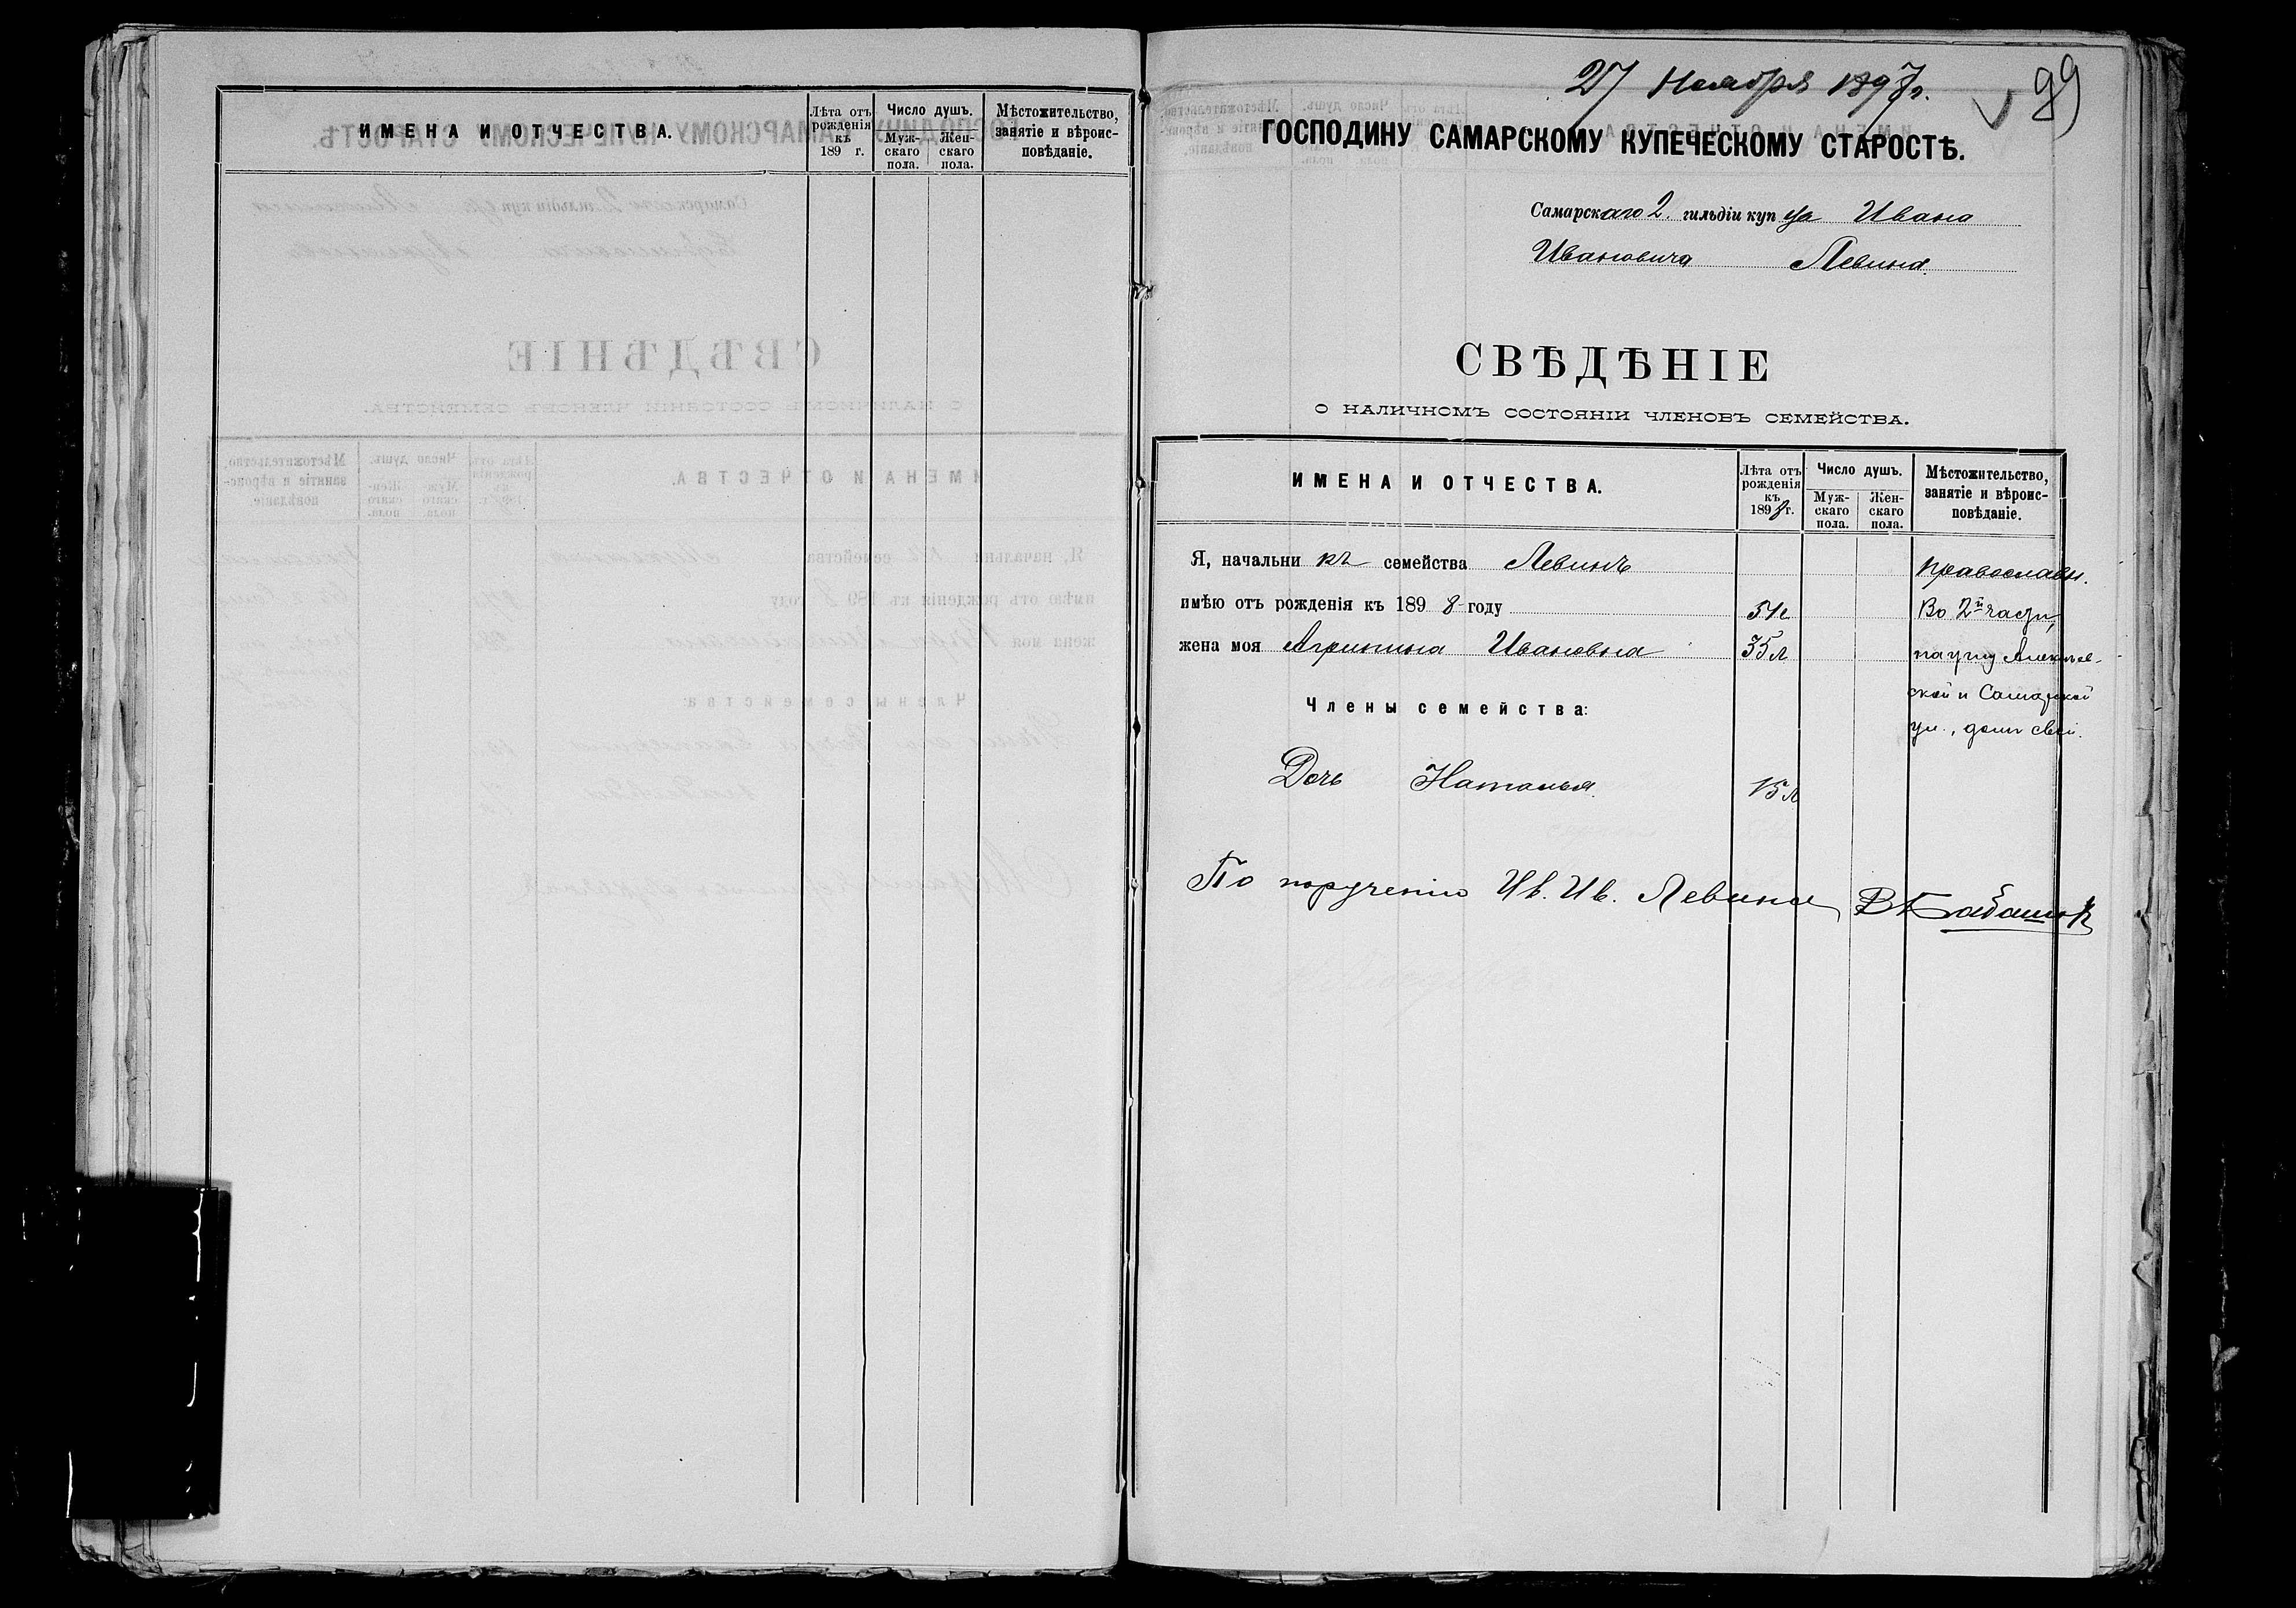 ИМЕНА И ОТЧЕСТВА.
Лѣта отъ рожденія къ 189 г.
Число душъ.
Мужскаго пола.
Женскаго пола.
Мѣстожительство, занятіе и вѣроисповѣданіе.
27 Ноября 1897 г.
99
ГОСПОДИНУ САМАРСКОМУ КУПЕЧЕСКОМУ СТАРОСТѢ.
Самарскаго 2. гильдіи купца Ивана
Ивановича Левина.
СВѢДѢНІЕ
О НАЛИЧНОМЪ СОСТОЯНІИ ЧЛЕНОВЪ СЕМЕЙСТВА.
ИМЕНА И ОТЧЕСТВА.
Лѣта отъ рожденія къ 1898 г.
Число душъ.
Мужскаго пола.
Женскаго пола.
Мѣстожительство, занятіе и вѣроисповѣданіе.
Я, начальникъ семейства Левинъ православн.
имѣю отъ рожденія къ 1898 году Во 2й части,
жена моя Агрипина Ивановна 35 л на углу
ской и Самарской
Члены семейства:
ул., домъ свой.
Дочь Наталья. 15 л
По порученію Ив. Ив. Левина